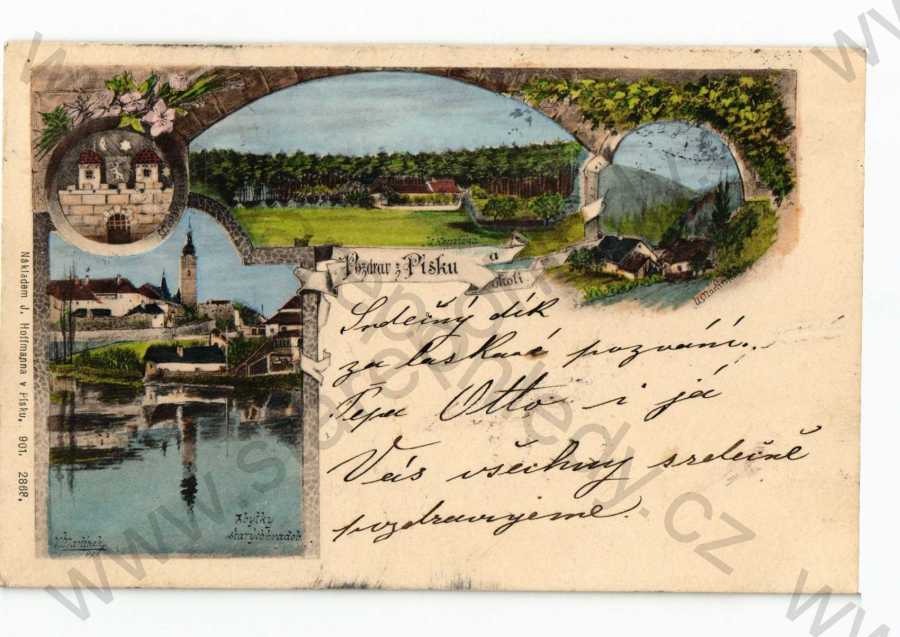 Pozdrav z Písku a okolí.
Srdečný dík
za laskavé pozvání.
Pepa Otto i já
Vás všechny srdečně
pozdravujeme.
Zbytky
starých hradeb.
Nákladem J. Hoffmanna v Písku. 901. 2868.
www.stare-pohledy.cz